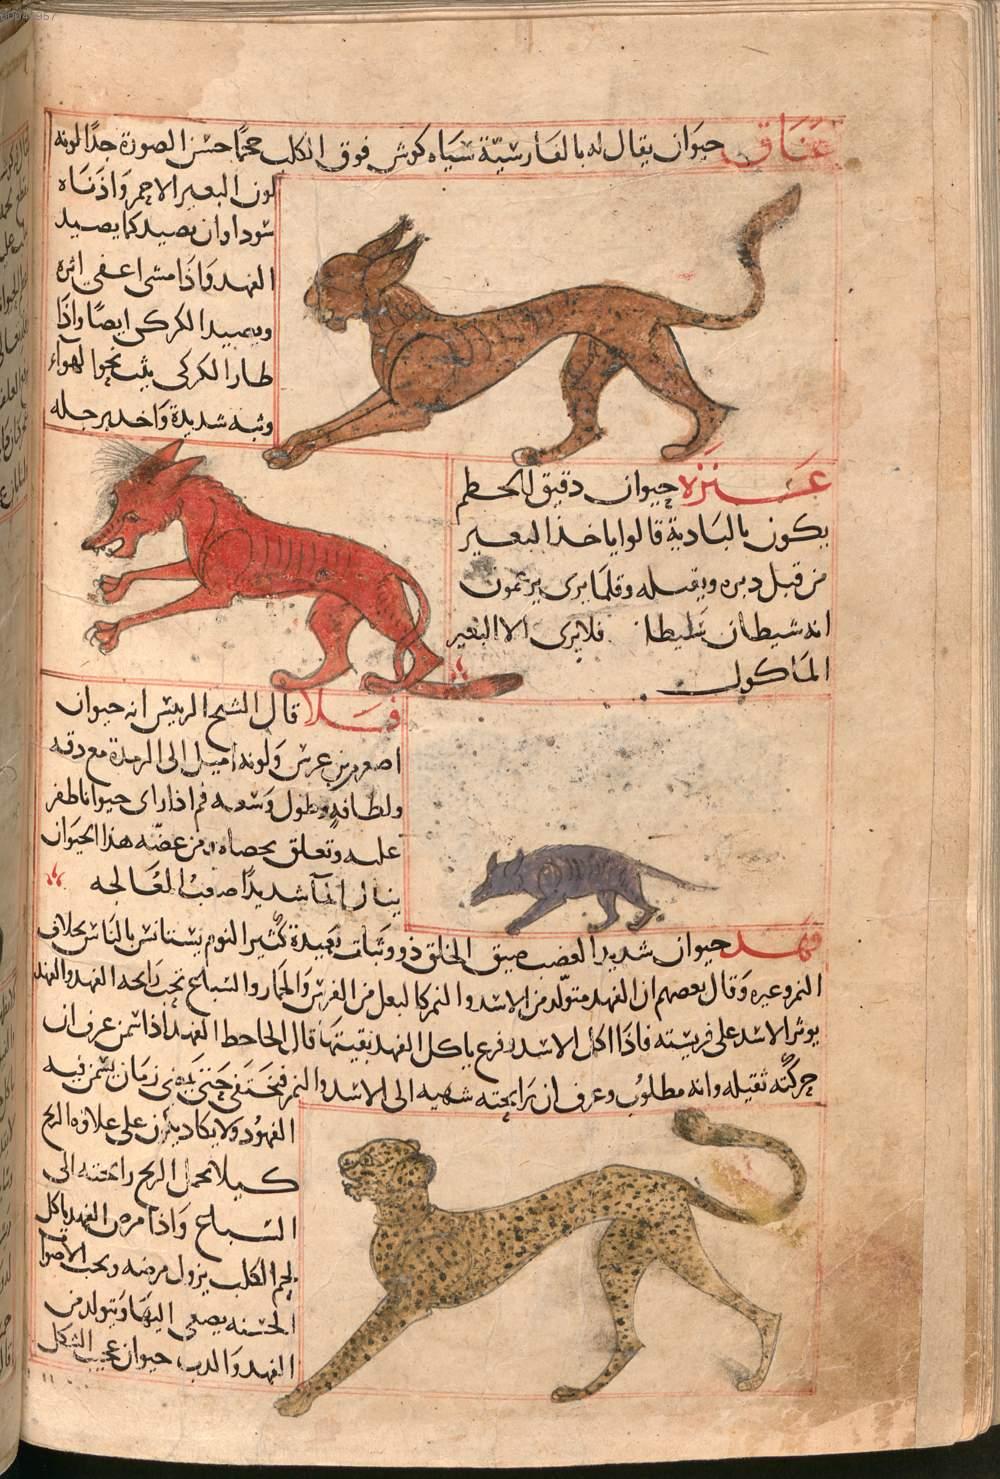 عناق حيوان يقال له بالفارسيّة سياه كوش فوق الكلب حجمًا حسن الصورة جدًا لونه
لون البعير الاحمر واذناه
سوداوان يصيد كما يصيد
الفهد واذا مشى اعفى اثره
ويصيد الكركى ايضًا واذا
طار الكركى يثب نحو الهوآء
وثبه شديدة واخد برجله
عنزه حيوان دقيق الخطم
يكون بالبادية قالوا ياخذ البعير
من قبل دبره ويقبله وقلما يرى يزعمون
انه شيطان فلا يرى الا البعير
الماكول
فسلا قال الشيخ الرييس انه حيوان
اصغر من عرس ولونه اميل الى الرمدة مع دقه
ولطافةٍ وطول وسعه فم اذا راى حيوانا طفر
عليه وتعلق بخصاه ومن عضّه هذا الحيوان
ينال المآ شديدًا صعب المعالجه
فهد حيوان شديد الغضب ضيق الخلق ذو وثبات بعيدة كثير النوم يستانس بالناس بخلاف
النمر وغيره وقال بعضهم ان الفهد متولّد من الاسد والنمر كالبغل من الفرس والحمار والسباع تحب رايحه الفهد والفهد
يوثر الاسد على فريسته فاذا اكل الاسد وفرغ ياكل الفهد بقيتها قال الجاحظ الفهد اذا سمن عرف ان
حركته ثقيله وانه مطلوب وعرف ان رايحته شهيه الى الاسد والنمر فيختفى حتى ينقضى زمان يسمن فيه
الفهود ولا يكاد يكون على علاوة الريح
كيلا يحمل الريح رايحته الى
السباع واذا مرض الفهد ياكل
لحم الكلب يزول مرضه ويحب الاصوات
الحسنه يصغى اليها ويتولد من
الفهد والدب حيوان عجيب الشكل